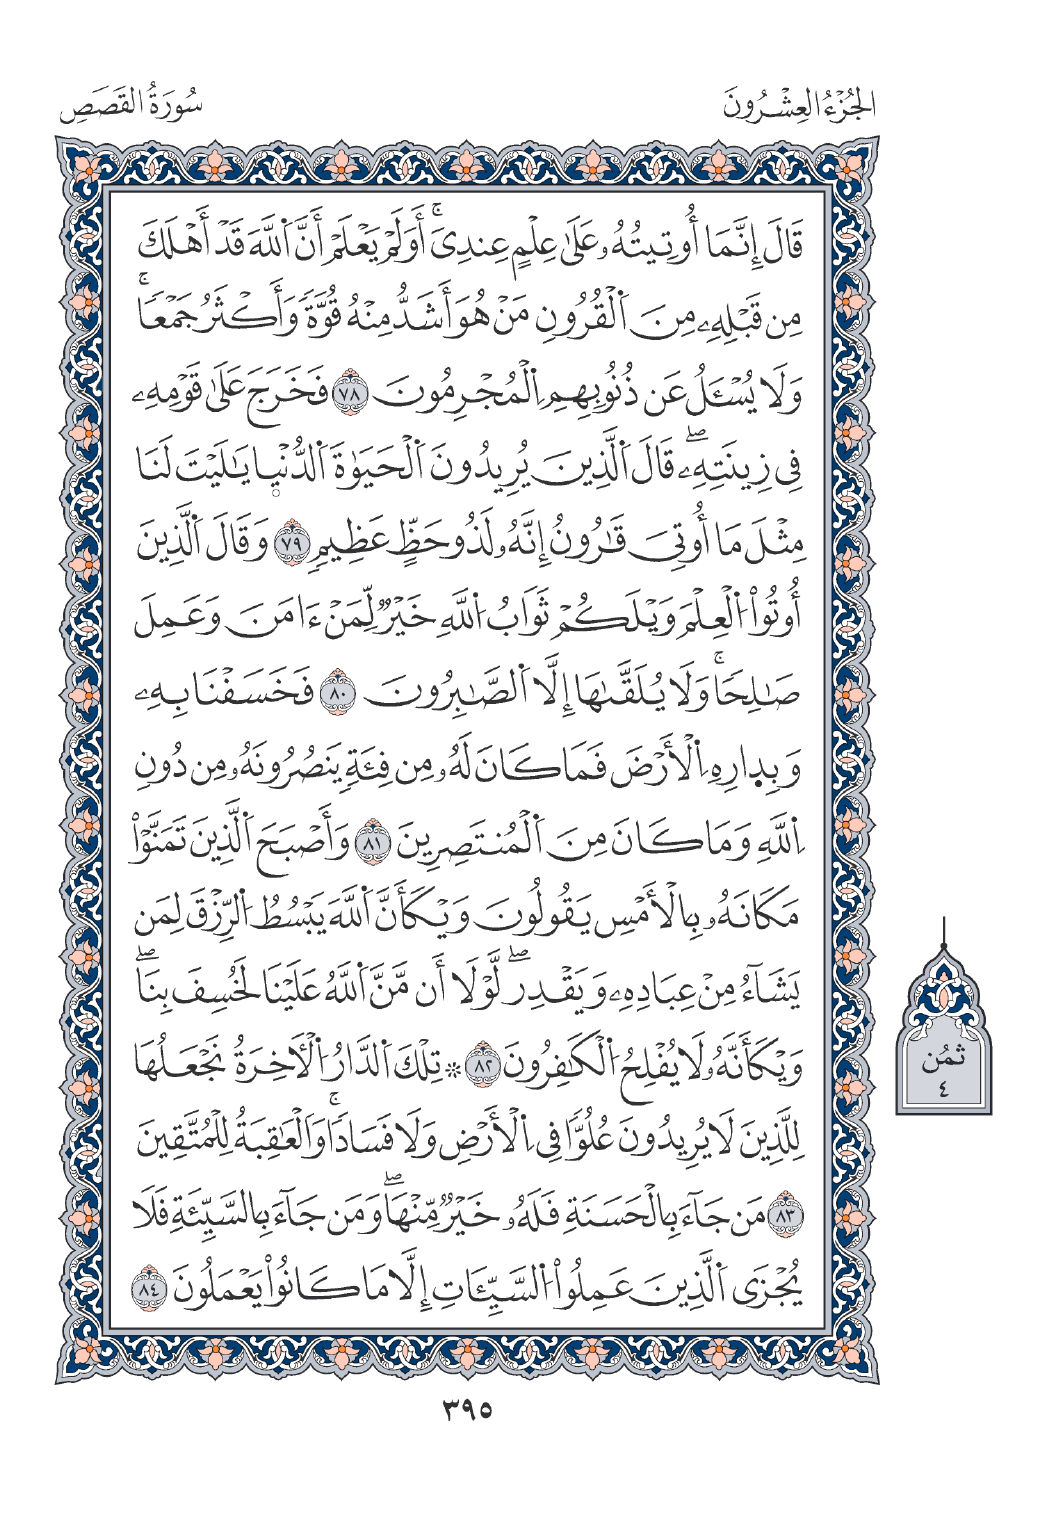 الجُزْءُ العِشْرُونَ
سُورَةُ القَصَصِ
قَالَ إِنَّمَا أُوتِيتُهُۥ عَلَىٰ عِلْمٍ عِندِيَۚ أَوَلَمْ يَعْلَمْ أَنَّ اَ۬للَّهَ قَدْ أَهْلَكَ
مِن قَبْلِهِۦ مِنَ اَ۬لْقُرُونِ مَنْ هُوَ أَشَدُّ مِنْهُ قُوَّةً وَأَكْثَرُ جَمْعاًۚ
وَلَا يُسْـَٔلُ عَن ذُنُوبِهِمِ اِ۬لْمُجْرِمُونَ ٧٨ فَخَرَجَ عَلَىٰ قَوْمِهِۦ
فِي زِينَتِهِۦۖ قَالَ اَ۬لَّذِينَ يُرِيدُونَ اَ۬لْحَيَوٰةَ اَ۬لدُّنْيٜا يَٰلَيْتَ لَنَا
مِثْلَ مَا أُوتِيَ قَٰرُونُ إِنَّهُۥ لَذُو حَظٍّ عَظِيمٍ ٧٩ وَقَالَ اَ۬لَّذِينَ
أُوتُواْ اُ۬لْعِلْمَ وَيْلَكُمْ ثَوَابُ اُ۬للَّهِ خَيْرٌ لِّمَنْ ءَامَنَ وَعَمِلَ
صَٰلِحاًۚ وَلَا يُلَقَّىٰهَا إِلَّا اَ۬لصَّٰبِرُونَ ٨٠ فَخَسَفْنَا بِهِۦ
وَبِدٜارِهِ اِ۬لْأَرْضَ فَمَا كَانَ لَهُۥ مِن فِئَةٍ يَنصُرُونَهُۥ مِن دُونِ
اِ۬للَّهِ وَمَا كَانَ مِنَ اَ۬لْمُنتَصِرِينَ ٨١ وَأَصْبَحَ اَ۬لَّذِينَ تَمَنَّوْاْ
مَكَانَهُۥ بِالْأَمْسِ يَقُولُونَ وَيْكَأَنَّ اَ۬للَّهَ يَبْسُطُ اُ۬لرِّزْقَ لِمَن
يَشَآءُ مِنْ عِبَادِهِۦ وَيَقْدِرُۖ لَوْلَا أَن مَّنَّ اَ۬للَّهُ عَلَيْنَا لَخُسِفَ بِنَاۖ
وَيْكَأَنَّهُۥ لَا يُفْلِحُ اُ۬لْكَٰفِرُونَ ٨٢ ۞ تِلْكَ اَ۬لدَّارُ اُ۬لْأٓخِرَةُ نَجْعَلُهَا
ثمُن
٤
لِلَّذِينَ لَا يُرِيدُونَ عُلُوّاً فِي اِ۬لْأَرْضِ وَلَا فَسَاداًۚ وَالْعَٰقِبَةُ لِلْمُتَّقِينَ
٨٣ مَن جَآءَ بِالْحَسَنَةِ فَلَهُۥ خَيْرٌ مِّنْهَاۖ وَمَن جَآءَ بِالسَّيِّئَةِ فَلَا
يُجْزَى اَ۬لَّذِينَ عَمِلُواْ اُ۬لسَّيِّـَٔاتِ إِلَّا مَا كَانُواْ يَعْمَلُونَ ٨٤
٣٩٥